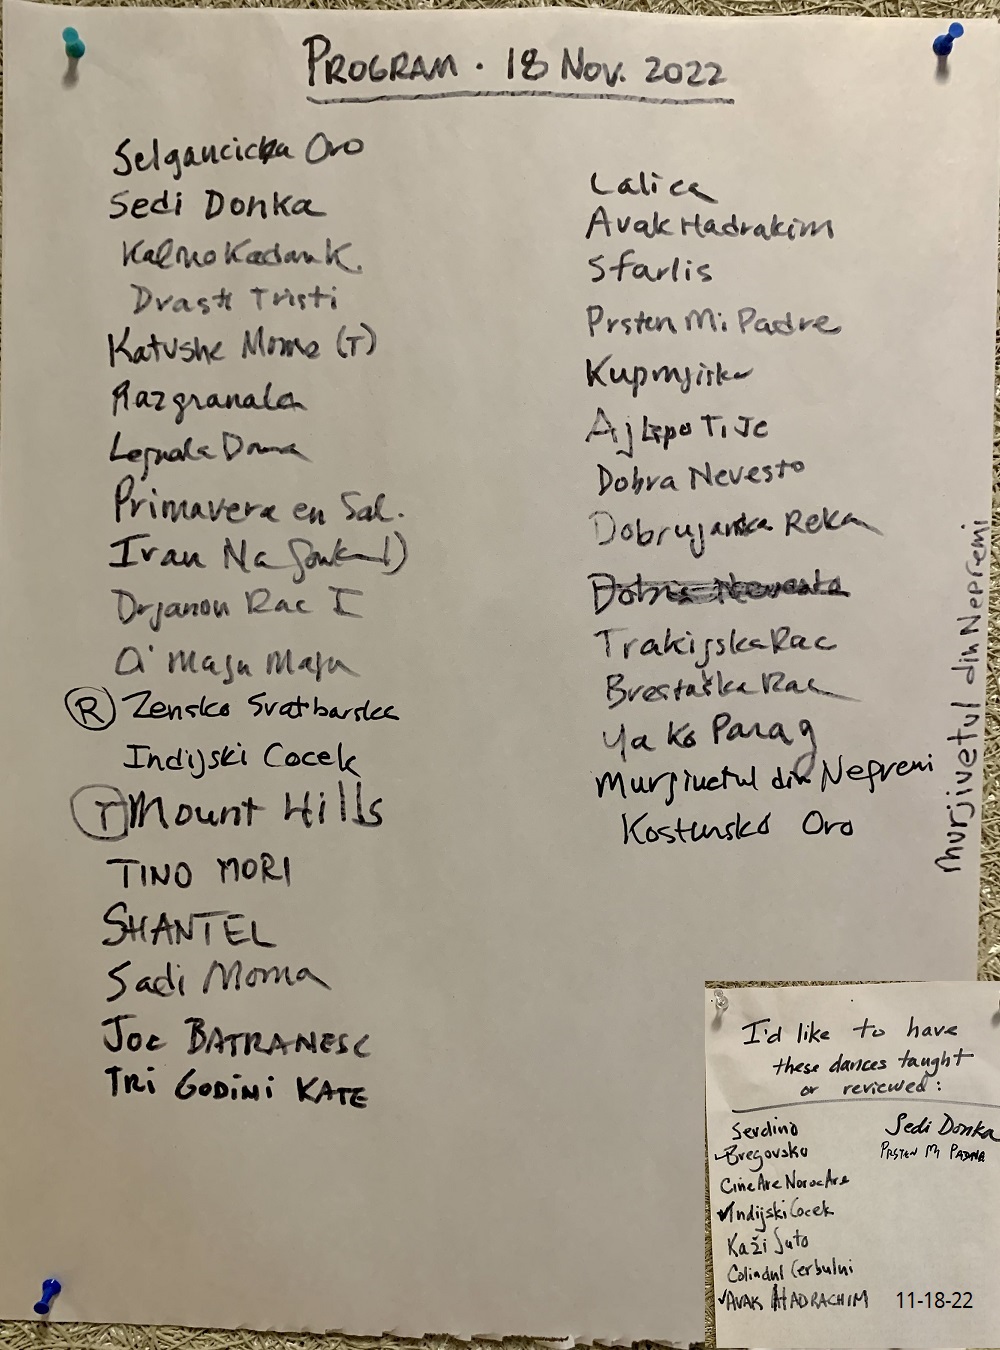 PROGRAM · 18 NOV. 2022
Selgancicka Oro
Sedi Donka
Kalno Kadan K.
Drasti Tristi
Katushe Mome (T)
Razgranala
Legnala Dana
Primavera en Sal.
Ivan Na
Drjanou Rac I
Oi Maju Maju
(R) Zensko Svatbarska
Indijski Cocek
(T) Mount Hills
TINO MORI
SHANTEL
Sadi Moma
JOC BATRANESC
TRI GODINI KATE
Lalica
Avak Hadrakim
Sfarlis
Prsten Mi Padre
Aj Lepo Ti Je
Dobra Nevesto
Dobrujanska Reka
Trakijska Rac
Brestaška Rac
Ya Ko Parag
Murjivetul din Nepremi
Kostursko Oro
Murjivetul din Nepremi
I'd like to have
these dances taught
or reviewed:
Serdino
Bregovsko
Cine Are Noroc Are
Indijski Cocek
Kaži Suto
Colindul Cerbului
AVAK HADRACHIM
Sedi Donka
PRSTEN MI PADNA
11-18-22